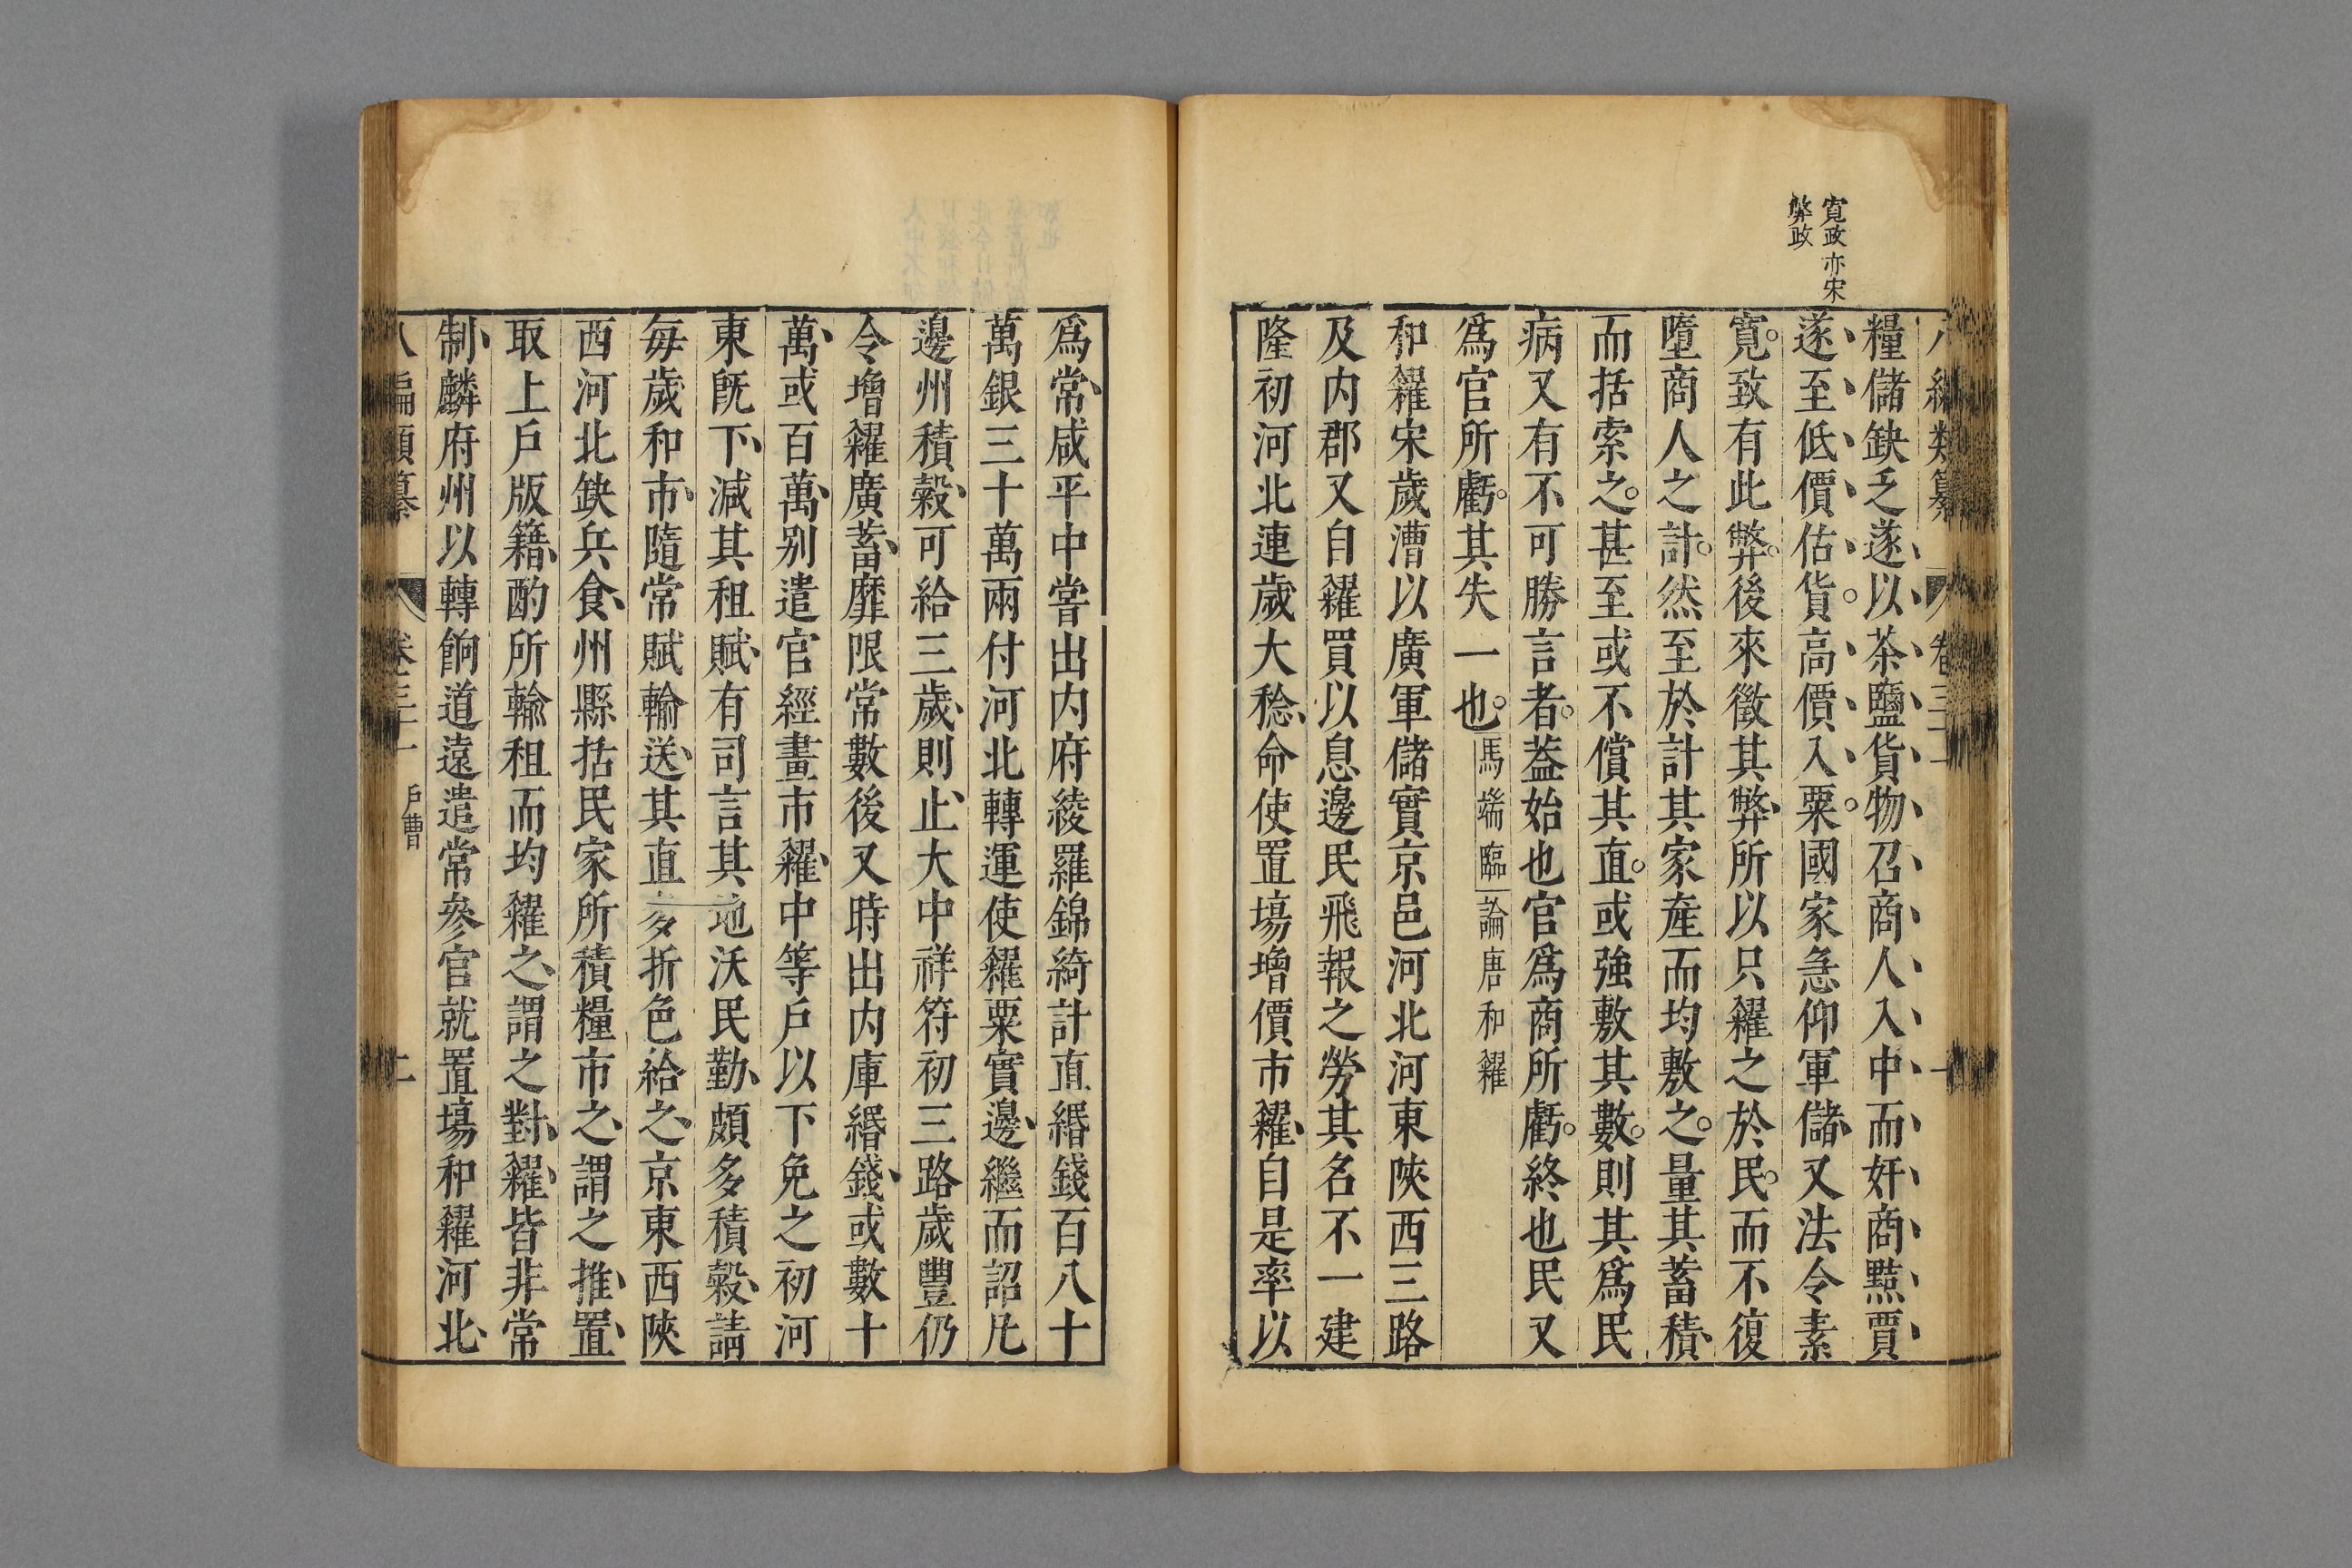 寛政亦宋
弊政
糧儲缺乏遂以茶鹽貨物召商人入中而奸商黠賈
遂至低價估貨高價入粟國家急仰軍儲又法令素
寛致有此弊後來徵其弊所以只糴之於民而不復
墮商人之計然至於計其家產而均敷之量其蓄積
而括索之甚至或不償其直或強敷其數則其爲民
病又有不可勝言者葢始也官爲商所虧終也民又
爲官所虧其失一也馬端臨論唐和糴
和糴宋歲漕以廣軍儲實京邑河北河東陜西三路
及内郡又自糴買以息邊民飛報之勞其名不一建
隆初河北連歲大稔命使置塲增價市糴自是率以
爲常咸平中嘗出内府綾羅錦綺計直緡錢百八十
萬銀三十萬兩付河北轉運使糴粟實邊繼而詔凡
邊州積穀可給三歲則止大中祥符初三路歲豐仍
令增糴廣蓄靡限常數後又時出内庫緡錢或數十
萬或百萬别遣官經畫市糴中等戶以下免之初河
東既下減其租賦有司言其地沃民勤頗多積穀請
每歲和市隨常賦輸送其直多折色給之京東西陜
西河北缺兵食州縣括民家所積糧市之謂之推置
取上戶版籍酌所輸租而均糴之謂之對糴皆非常
制麟府州以轉餉道遠遣常參官就置塲和糴河北
八編類纂 卷三十一 戶曹